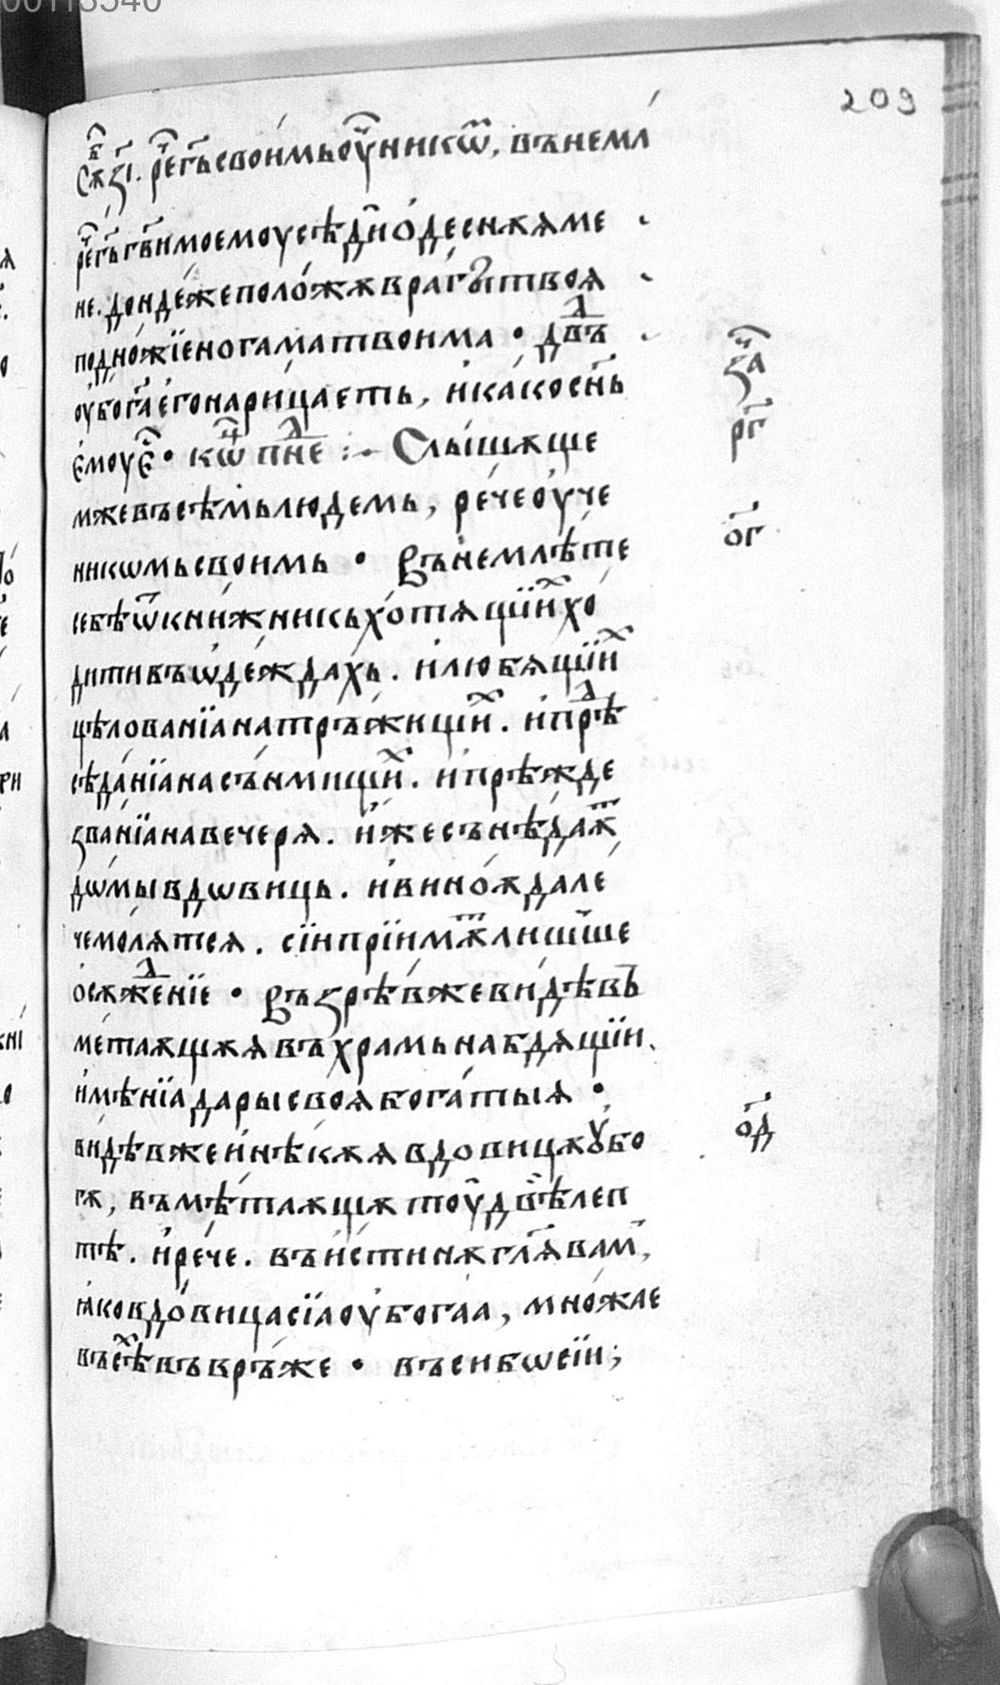 00113540
209
Сѫ҇в ꙁ҃і. рече҇ г҃ъ своимь ѹ҆ч҃нникѡⷨ, вънемл
рече҇ г҃ь г҃ви моемоу сѣди ѡ҆ десн҃ѫѧ ме
не. дондеже положѫ врагы твоѧ
подножїе ногама твоима • дв҃дъ
ѹбо г҃а е҆го нарицаеть, и҆ како сн҃ь
е҆моу е҆҇ • кѡ҃ц пⷩ҇е :~ Слышѫще
мже въсѣмь людемь, рече ѹ҆че
никѡмь своимь • Вънемлѣте
себѣ ѿ книжникь хотѧщїиⷯ хо
дити въ ѡ҆деждахь. и҆ любѧщїиⷯ
цѣлованїа на тръжищиⷯ. и҆ прѣⷣ
сѣданїа на сънмищиⷯ. и҆ прѣжде
ꙁванїа на вечерѧ. и҆же сънѣдаѫⷮ
дѡмы вдѡвиць. и҆ виноѫ дале
че молѧтсѧ. сїи прїимѫⷮ лишше
ѡ҆сѫжⷣенїе • Въꙁрѣв же видѣвь
метаѫщѫѧ въ храмь на бдѧщїи.
и҆мѣнїа дары своѧ богатыѧ •
видѣв же и҆ нѣкѫѧ вдовицѫ ѹ҆бо
гѫ, въмѣтаѫщѫ тоу двѣ леп
тѣ. и҆ рече. въ истинѫ гл҃ѧ вамⷨ,
ꙗко вдовица сїа ѹ҆богаа, множае
въсѣⷯ въвръже • въси бѡ сїи;
ꙁ҃ч а
р҃г
о҃г
о҃д